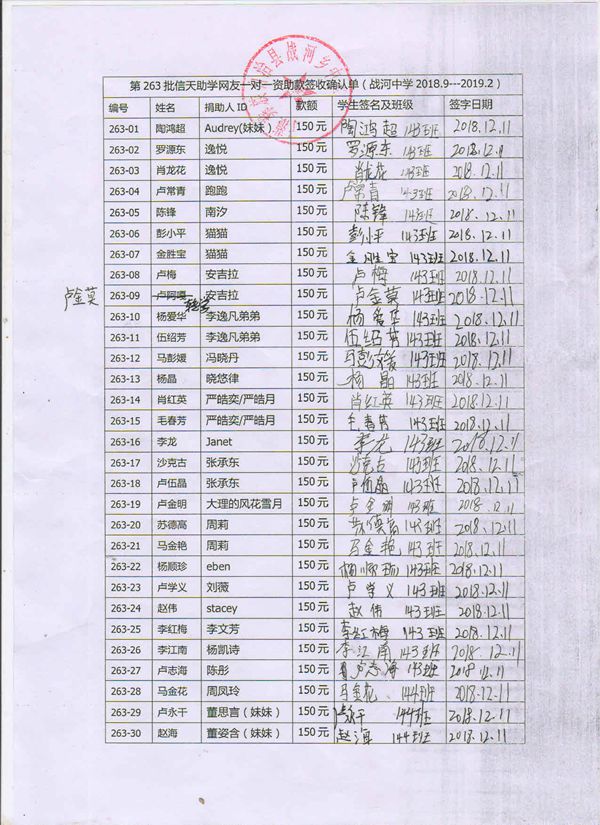 治县战河乡
第263批信天助学网友一对一资助款签收确认单（战河中学2018.9---2019.2）
编号 姓名 捐助人ID 款额 学生签名及班级 签字日期
263-01 陶鸿超 Audrey(妹妹) 150元 陶鸿超 143班 2018.12.11
263-02 罗源东 逸悦 150元 罗源东 143班 2018.12.11
263-03 肖龙花 逸悦 150元 肖龙花 143班 2018.12.11
263-04 卢常青 跑跑 150元 卢常青 143班 2018.12.11
263-05 陈锋 南汐 150元 陈锋 143班 2018.12.11
263-06 彭小平 猫猫 150元 彭小平 143班 2018.12.11
263-07 金胜宝 猫猫 150元 金胜宝 143班 2018.12.11
263-08 卢梅 安吉拉 150元 卢梅 143班 2018.12.11
卢金莫 263-09 卢阿嘎 转学 安吉拉 150元 卢金莫 143班 2018.12.11
263-10 杨爱华 李逸凡弟弟 150元 杨爱华 143班 2018.12.11
263-11 伍绍芳 李逸凡弟弟 150元 伍绍芳 143班 2018.12.11
263-12 马彭媛 冯晓丹 150元 马彭媛 143班 2018.12.11
263-13 杨晶 晓悠律 150元 杨晶 143班 2018.12.11
263-14 肖红英 严皓奕/严皓月 150元 肖红英 143班 2018.12.11
263-15 毛春芳 严皓奕/严皓月 150元 毛春芳 143班 2018.12.11
263-16 李龙 Janet 150元 李龙 143班 2018.12.11
263-17 沙克古 张承东 150元 沙克古 143班 2018.12.11
263-18 卢伍晶 张承东 150元 卢伍晶 143班 2018.12.11
263-19 卢金明 大理的风花雪月 150元 卢金明 143班 2018.12.11
263-20 苏德高 周莉 150元 苏德高 143班 2018.12.11
263-21 马金艳 周莉 150元 马金艳 143班 2018.12.11
263-22 杨顺珍 eben 150元 杨顺珍 143班 2018.12.11
263-23 卢学义 刘薇 150元 卢学义 143班 2018.12.11
263-24 赵伟 stacey 150元 赵伟 143班 2018.12.11
263-25 李红梅 李文芳 150元 李红梅 143班 2018.12.11
263-26 李江南 杨凯诗 150元 李江南 143班 2018.12.11
263-27 卢志海 陈彤 150元 卢志海 143班 2018.12.11
263-28 马金花 周凤玲 150元 马金花 144班 2018.12.11
263-29 卢永干 董思言（妹妹） 150元 卢永干 144班 2018.12.11
263-30 赵海 董姿含（妹妹） 150元 赵海 144班 2018.12.11